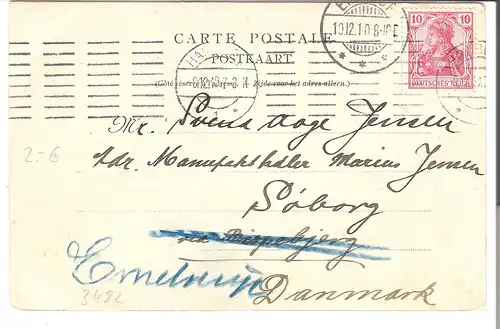 CARTE POSTALE
POSTKAART
19.12.10.8-10E
10 10
DEUTSCHES REICH
(Côté réservé à l'adresse. – Zijde voor het adres alleen.)
Mr. Svend Aage Jensen
Adr. Manufakthdler Marius Jensen
2.-€
Söborg
via Bispebjerg
Emdrup
Danmark
3482